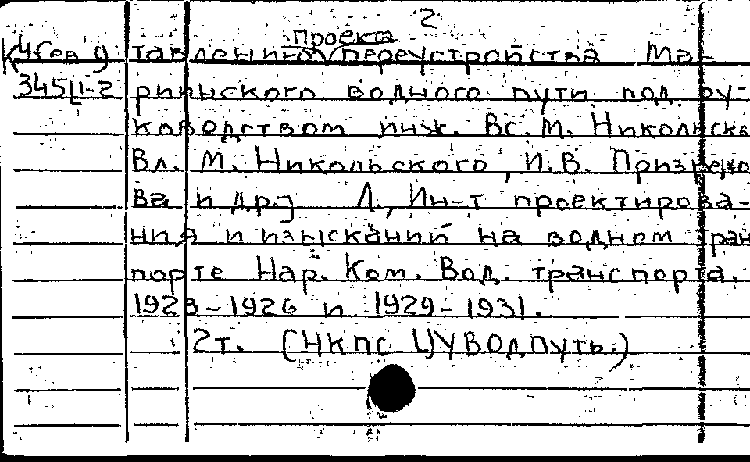 2
проекта
К4Гев9 тавлению переустройства Ма-
345/1-2 риинского водного пути под ру-
ководством инж. Вс. М. Никольска
Вл. М. Никольского, И.В. Призрено
ва и др.] Л., Ин-т проектирова-
ния и изысканий на водном тран
порте Нар. Ком. Вод. транспорта.
1923-1926 и 1929-1931.
2т. (НКПС ЦУВОДПУТЬ.)